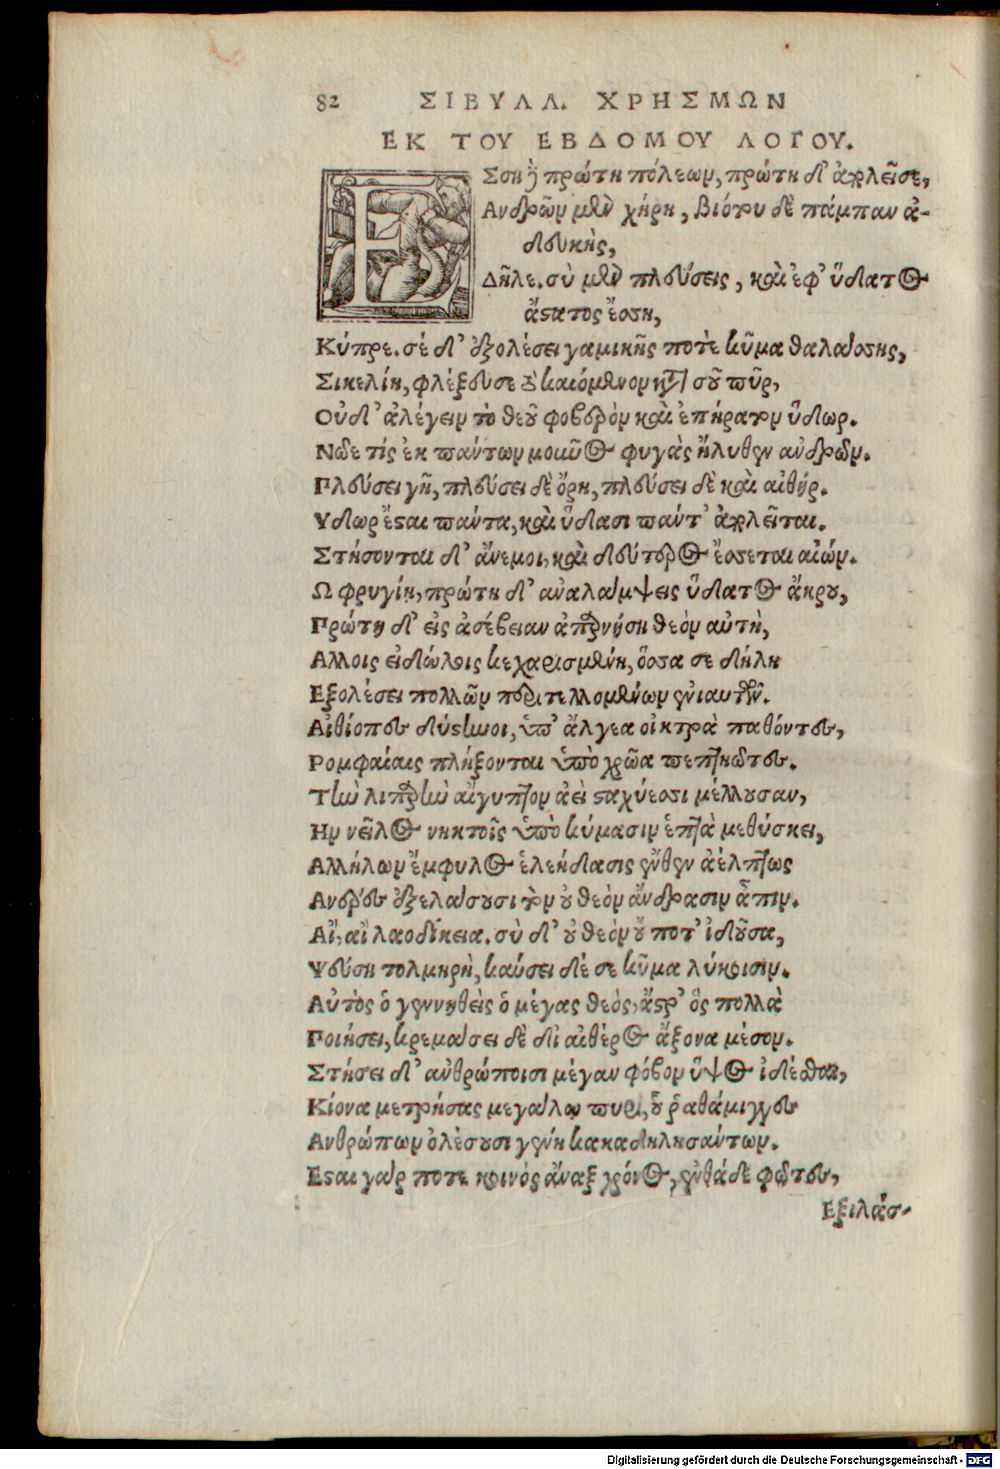 82 ΣΙΒΥΛΛ. ΧΡΗΣΜΩΝ
ΕΚ ΤΟΥ ΕΒΔΟΜΟΥ ΛΟΓΟΥ.
ΕΣση πρώτη πόλεων, πρώτη δ' ἀπλεῖσε,
Ανδρῶν μὲν χήρη, βιότου δὲ πάμπαν ἀ-
δευκὴς,
Δῆλε. σὺ μὲν πλεύσεις, καὶ ἐφ' ὕδατος
ἄστατος ἔσση,
Κύπρε. σέ δ' ἐξολέσει γαμικῆς ποτὲ κῦμα θαλάσσης,
Σικελίη, φλέξουσε τὸ καιόμενον κατὰ σοῦ πῦρ,
Οὐδ' ἀλέγειν τὸ θεοῦ φοβερὸν καὶ ἐπήρατον ὕδωρ.
Νῶε τίς ἐκ πάντων μοιῦνος φυγὰς ἤλυθεν ἀνδρῶν.
Πλεύσει γῆ, πλεύσει δὲ ὄρη, πλεύσει δὲ καὶ αἰθήρ.
Υδωρ ἔσται πάντα, καὶ ὕδασι πάντ' ἀπλεῖται.
Στήσονται δ' ἄνεμοι, καὶ δεύτερος ἔσσεται αἰών.
Ω φρυγίη, πρώτη δ' ἀναλάμψεις ὕδατος ἄκρου,
Πρώτη δ' εἰς ἀσέβειαν ἀπαρνήση θεὸν αὐτὴ,
Αλλοις εἰδώλοις κεχαρισμένη, ὅσσα σε δήλη
Εξολέσει πολλῶν περιτελλομένων ἐνιαυτῶν.
Αἰθίοπες δύστηνοι, ὑπ' ἄλγεα οἰκτρὰ παθόντες,
Ρομφαίαις πλήξονται ὑπὸ χρῶα πεπτηῶτες.
Τὴν λιπαρὴν αἴγυπτον ἀεὶ σταχύεσσι μέλλουσαν,
Ην νεῖλος νηκτοῖς ὑπὸ κύμασιν ἑπτὰ μεθύσκει,
Αλλήλων ἔμφυλος ἑλεήδασις ἔνθεν ἀέλπτως
Ανέρες ἐξελάσουσι τὸν οὐ θεὸν ἄνδρασιν ἆπιν.
Αἴ, αἲ λαοδίκεια. σὺ δ' οὐ θεὸν οὔ ποτ' ἰδοῦσα,
Ψεύση τολμηρὴ, καύσει δέ σε κῦμα λύκοισιν.
Αὐτὸς ὁ γεννηθεὶς ὁ μέγας θεὸς, ἄστρ' ὃς πολλὰ
Ποιήσει, κρεμάσει δὲ δι αἰθέρος ἄξονα μέσον.
Στήσει δ' ἀνθρώποισι μέγαν φόβον ὕψος ἰδέσθαι,
Κίονα μετρήσας μεγάλῳ πυρὶ, οὗ ῥαθάμιγγες
Ανθρώπων ὀλέσουσι γένη κακαδηλησάντων.
Εσται γάρ ποτε κοινὸς ἄναξ χρόνος, ἐνθάδε φῶτες,
Εξιλάσ-
Digitalisierung gefördert durch die Deutsche Forschungsgemeinschaft - DFG